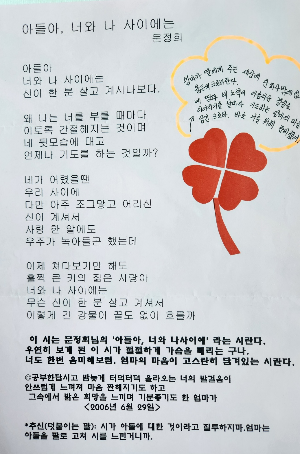 아들아, 너와 나 사이에는
문정희
아들아
너와 나 사이에는
신이 한 분 살고 계시나보다.
왜 나는 너를 부를 때마다
이토록 간절해지는 것이며
네 뒷모습에 대고
언제나 기도를 하는 것일까?
네가 어렸을땐
우리 사이에
다만 아주 조그맣고 어리신
신이 계셔서
사랑 한 알에도
우주가 녹아들곤 했는데
이제 쳐다보기만 해도
훌쩍 큰 키의 젊은 사랑아
너와 나 사이에는
무슨 신이 한 분 살고 계셔서
이렇게 긴 강물이 끝도 없이 흐를까
이 시는 문정희님의 '아들아, 너와 나사이에' 라는 시란다.
우연히 보게 된 이 시가 절절하게 가슴을 때리는 구나.
너도 한번 음미해보렴. 엄마의 마음이 고스란히 담겨있는 시란다.
◎공부한답시고 밤늦게 터덕터덕 올라오는 너의 발걸음이
안쓰럽게 느껴져 마음 짠해지기도 하고
그속에서 밝은 희망을 느끼며 기분좋기도 한 엄마가
<2006년 6월 29일>
*추신(덧붙이는 말): 시가 아들에 대한 것이라고 질투하지마.엄마는
아들을 딸로 고쳐 시를 느낀거니까.